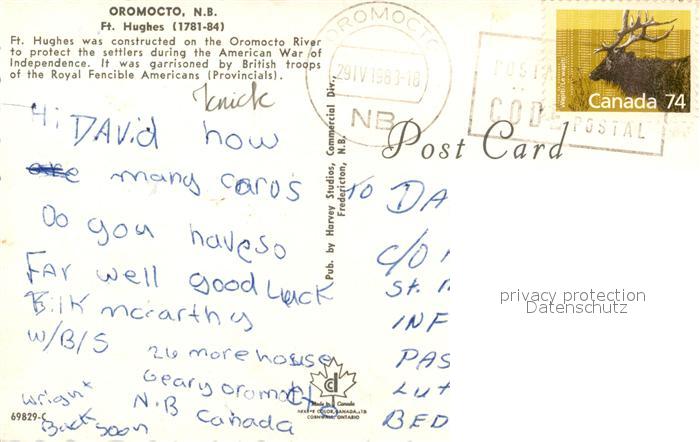 OROMOCTO, N.B.
Ft. Hughes (1781-84)
Ft. Hughes was constructed on the Oromocto River
to protect the settlers during the American War of
Independence. It was garrisoned by British troops
of the Royal Fencible Americans (Provincials).
Knick
Hi DAVid how
many caros
Do you haveso
FAr well good Luck
Bill mccarthy
W/B/S
26 more house
Geary oromocto
N.B Canada
wright
Back soon
69829-C
Made in Canada
Pub. by Harvey Studios, Commercial Div.,
Fredericton, N.B.
OROMOCTO
29 IV 1989-18
NB
POSTAL
CODE POSTAL
Canada 74
Post Card
TO DA
C/O
St.
INF
PAS
Lut
BED
privacy protection
Datenschutz